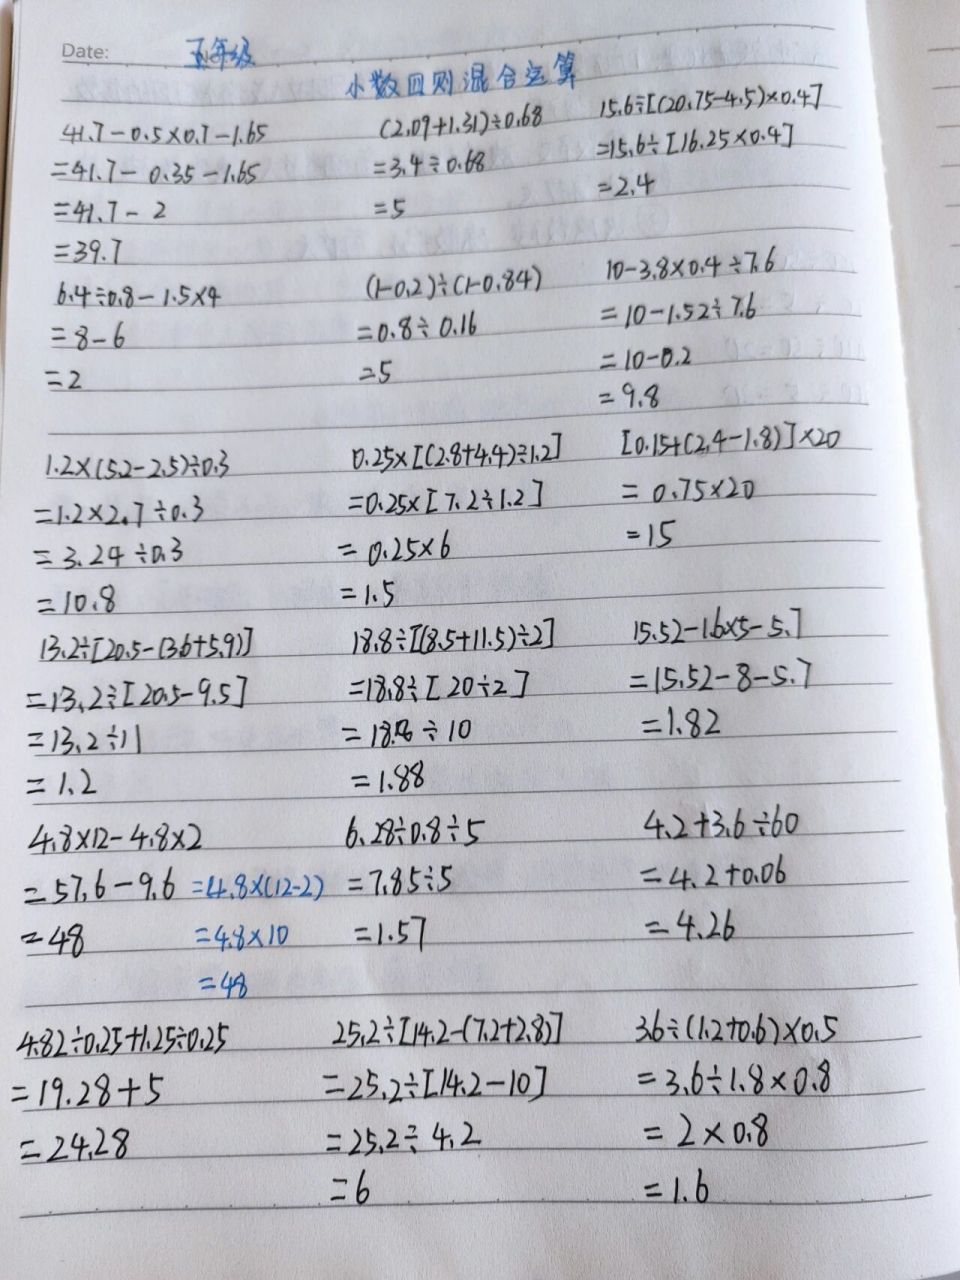 Date:
五年级
小数四则混合运算
41.7-0.5×0.7-1.65
=41.7-0.35-1.65
=41.7-2
=39.7
(2.09+1.31)÷0.68
=3.4÷0.68
=5
15.6÷[(20.75-4.5)×0.4]
=15.6÷[16.25×0.4]
=2.4
6.4÷0.8-1.5×4
=8-6
=2
(1-0.2)÷(1-0.84)
=0.8÷0.16
=5
10-3.8×0.4÷7.6
=10-1.52÷7.6
=10-0.2
=9.8
1.2×(5.2-2.5)÷0.3
=1.2×2.7÷0.3
=3.24÷0.3
=10.8
0.25×[(2.8+4.4)÷1.2]
=0.25×[7.2÷1.2]
=0.25×6
=1.5
[0.15+(2.4-1.8)]×20
=0.75×20
=15
13.2÷[20.5-(3.6+5.9)]
=13.2÷[20.5-9.5]
=13.2÷11
=1.2
18.8÷[(8.5+11.5)÷2]
=18.8÷[20÷2]
=18.8÷10
=1.88
15.52-1.6×5-5.7
=15.52-8-5.7
=1.82
4.8×12-4.8×2
=57.6-9.6
=48
=4.8×(12-2)
=4.8×10
=48
6.28÷0.8÷5
=7.85÷5
=1.57
4.2+3.6÷60
=4.2+0.06
=4.26
4.82÷0.25+1.25÷0.25
=19.28+5
=24.28
25.2÷[14.2-(7.2+2.8)]
=25.2÷[14.2-10]
=25.2÷4.2
=6
3.6÷(1.2+0.6)×0.5
=3.6÷1.8×0.8
=2×0.8
=1.6